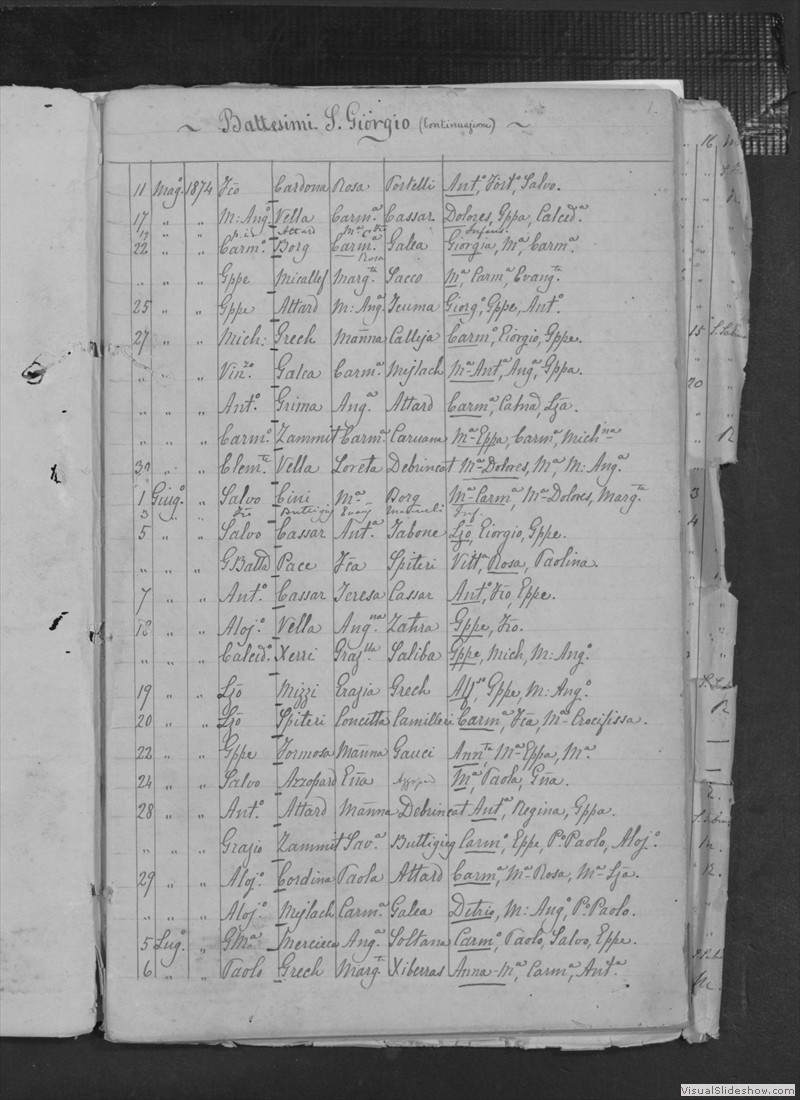 ~ Battesimi S. Giorgio (Continuazione) ~
11 Magº 1874 Fcõ Cardona Rosa Portelli Antº, Fortº, Salvo.
17 " " M: Angº Vella Carmª Cassar Dolores, Gppa, Calcidª
19 " " Attard
22 " " Carmº Borg Carmª Galea Giorgia, Mª, Carmª
Rosa
" " " Gppe Micallef Margta Sacco Mª, Carmª, Evangta
25 " " Gppe Attard M: Angª Teuma Giorgº, Gppe, Antº
27 " " Mich: Grech Mãnna Calleja Carmº, Giorgio, Gppe.
" " " Vinzo Galea Carmª Mejlach Mª-Antª, Angª, Gppa.
" " " Antº Grima Angª Attard Carmª, Catnd, Ljã.
" " " Carmº Zammit Carmª Caruana Mª-Gppa, Carmª, Michna
" " Clemte Vella Loreta Debrincat Mª-Dolores, Mª, M: Angª
1 Giugº " Salvo Cini Mª Borg Mª-Carmª, Mª-Dolores, Margta
3 " " Fcõ Buttigig Evang Inf.
5 " " Salvo Cassar Antª Tabone Ljõ, Giorgio, Gppe.
" " " G.Battã Pace Fcã Spiteri Vittª, Rosa, Paolina.
7 " " Antº Cassar Teresa Cassar Antº, Fcõ, Gppe.
18 " " Alojº Vella Angna Zahra Gppe, Fcõ.
" " " Calcidº Xerri Grazlla Saliba Gppe, Mich, M: Angº
19 " " Ljõ Mizzi Grazia Grech Alfso, Gppe, M: Angº
20 " " Ljõ Spiteri Concetta Camilleri Carmª, Fcã, Mª-Crocifissa.
22 " " Gppe Formosa Mãnna Gauci Annta, Mª-Gppa, Mª
24 " " Salvo Azzopard Gñã Azzopard Mª, Paola, Gñã.
28 " " Antº Attard Mãnna Debrincat Antª, Regina, Gppa.
" " " Grazio Zammit Savª Buttigieg Carmº, Gppe, Pº-Paolo, Alojº
29 " " Alojº Cordina Paola Attard Carmª, Mª-Rosa, Mª-Ljã.
" " " Alojº Mejlach Carmª Galea M: Angº, Pº-Paolo.
5 Lugº " GMª Mercieca Angª Soltana Carmº, Paolo, Salvo, Gppe.
6 " " Paolo Grech Margta Xiberras Anna-Mª, Carmª, Antª
16
15
20
3
4
VisualSlideshow.com